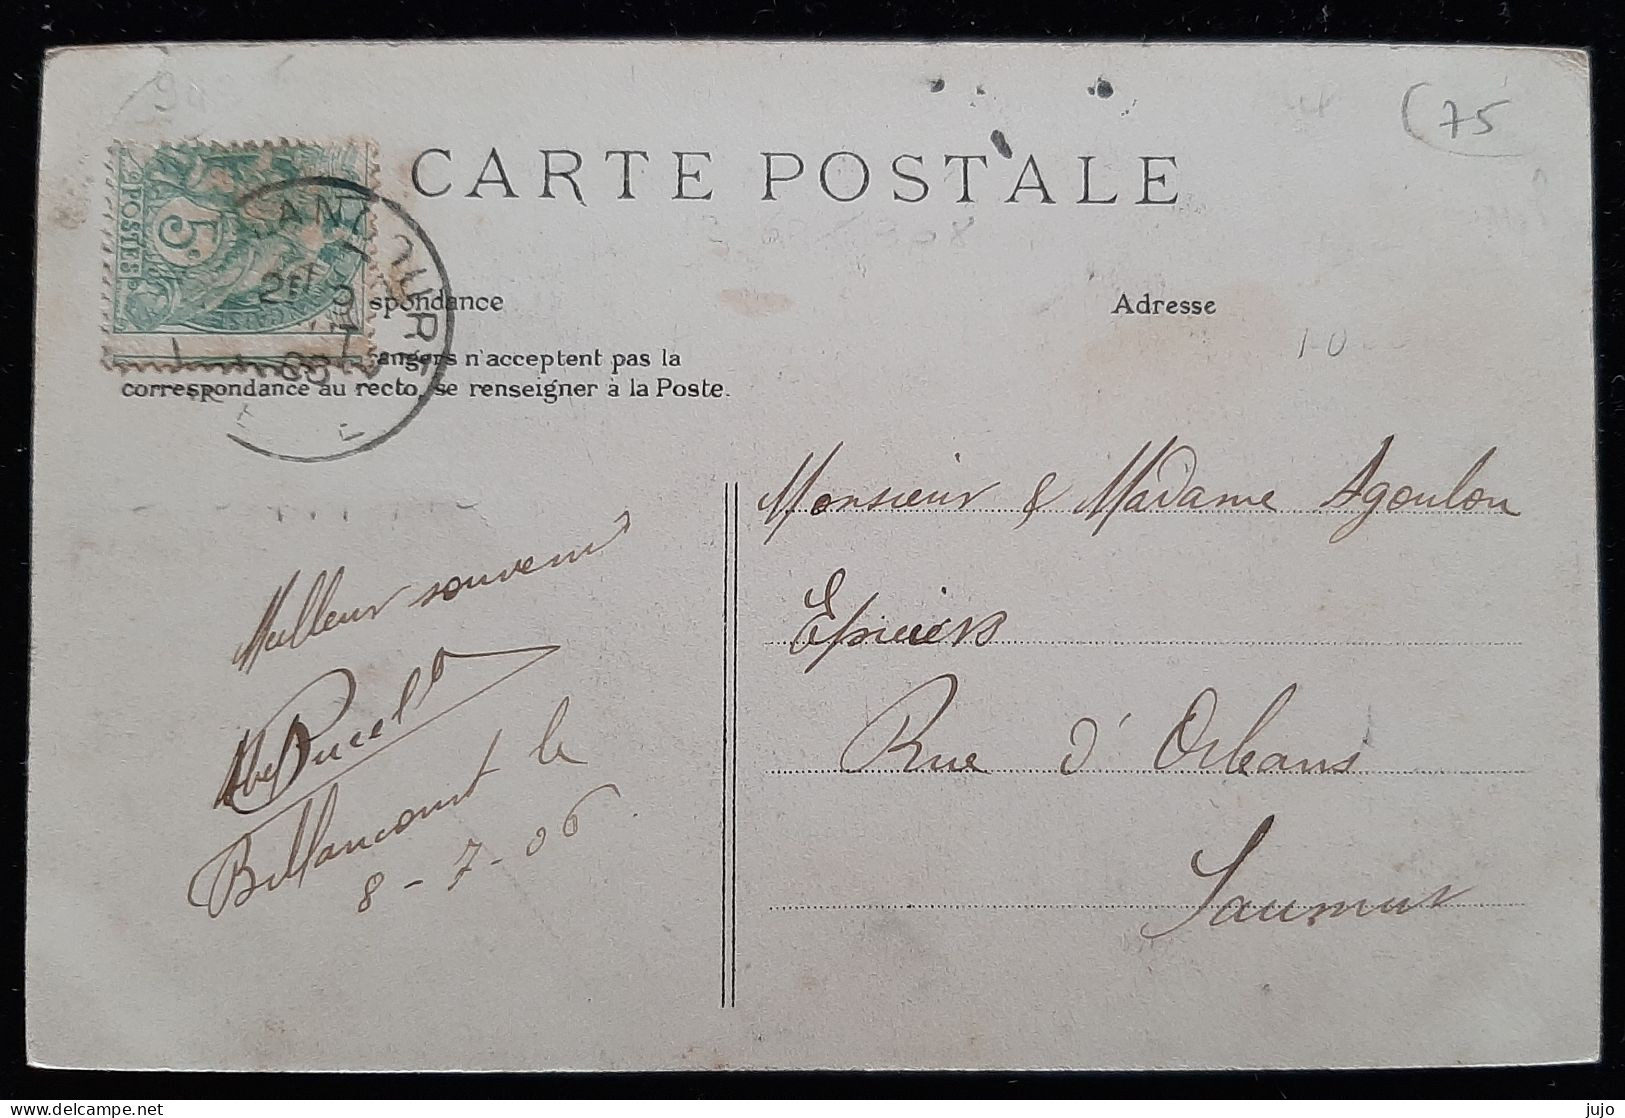 94
(75
CARTE POSTALE
2F POSTES
5c
spondance
Adresse
angers n'acceptent pas la
correspondance au recto, se renseigner à la Poste.
Meilleur souvenir
Pucel
Billancourt le
8-7-06
Monsieur & Madame Agoulon
Epiciers
Rue d'Orléans
Saumur
www.delcampe.net
jujo